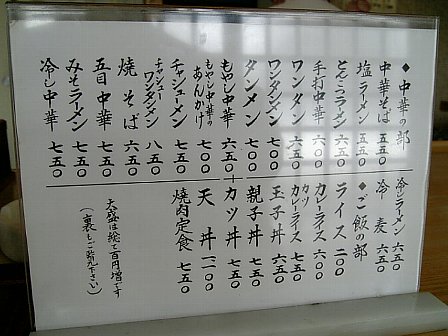 ◆中華の部
中華そば 五五〇
塩ラーメン 五五〇
とんこつラーメン 六五〇
手打中華 六〇〇
ワンタン 六五〇
ワンタンメン 七〇〇
タンメン 七〇〇
もやし中華 六五〇
もやし中華のあんかけ 七〇〇
チャシューメン 七五〇
チャシューワンタンメン 八五〇
焼そば 六五〇
五目中華 七五〇
みそラーメン 七五〇
冷し中華 七五〇
冷しラーメン 六五〇
冷麦 六五〇
◆ご飯の部
ライス 二〇〇
カレーライス 六五〇
カツカレーライス 七五〇
玉子丼 六五〇
親子丼 七五〇
カツ丼 七五〇
天丼 一二〇〇
焼肉定食 七五〇
大盛は総て百円増です
(裏もご覧下さい)